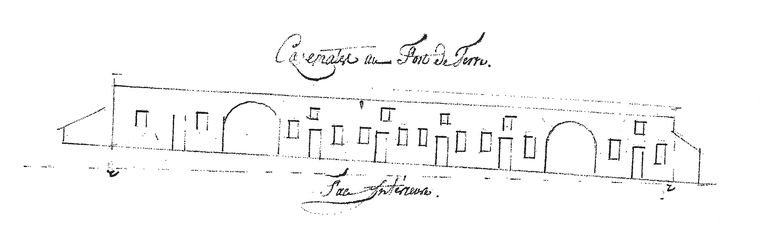 Casernes au Fort de Terre.
Face Intérieure.